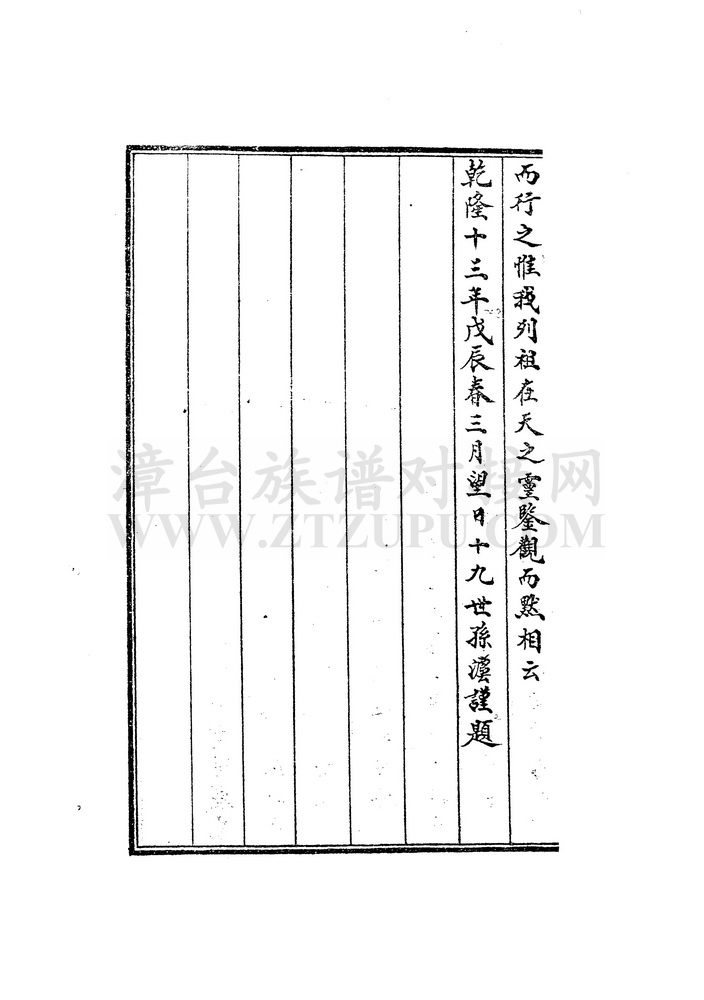 而行之惟我列祖在天之靈鑒觀而默相云
乾隆十三年戊辰春三月望日十九世孫謹題
漳台族谱对接网
WWW.ZTZUPU.COM